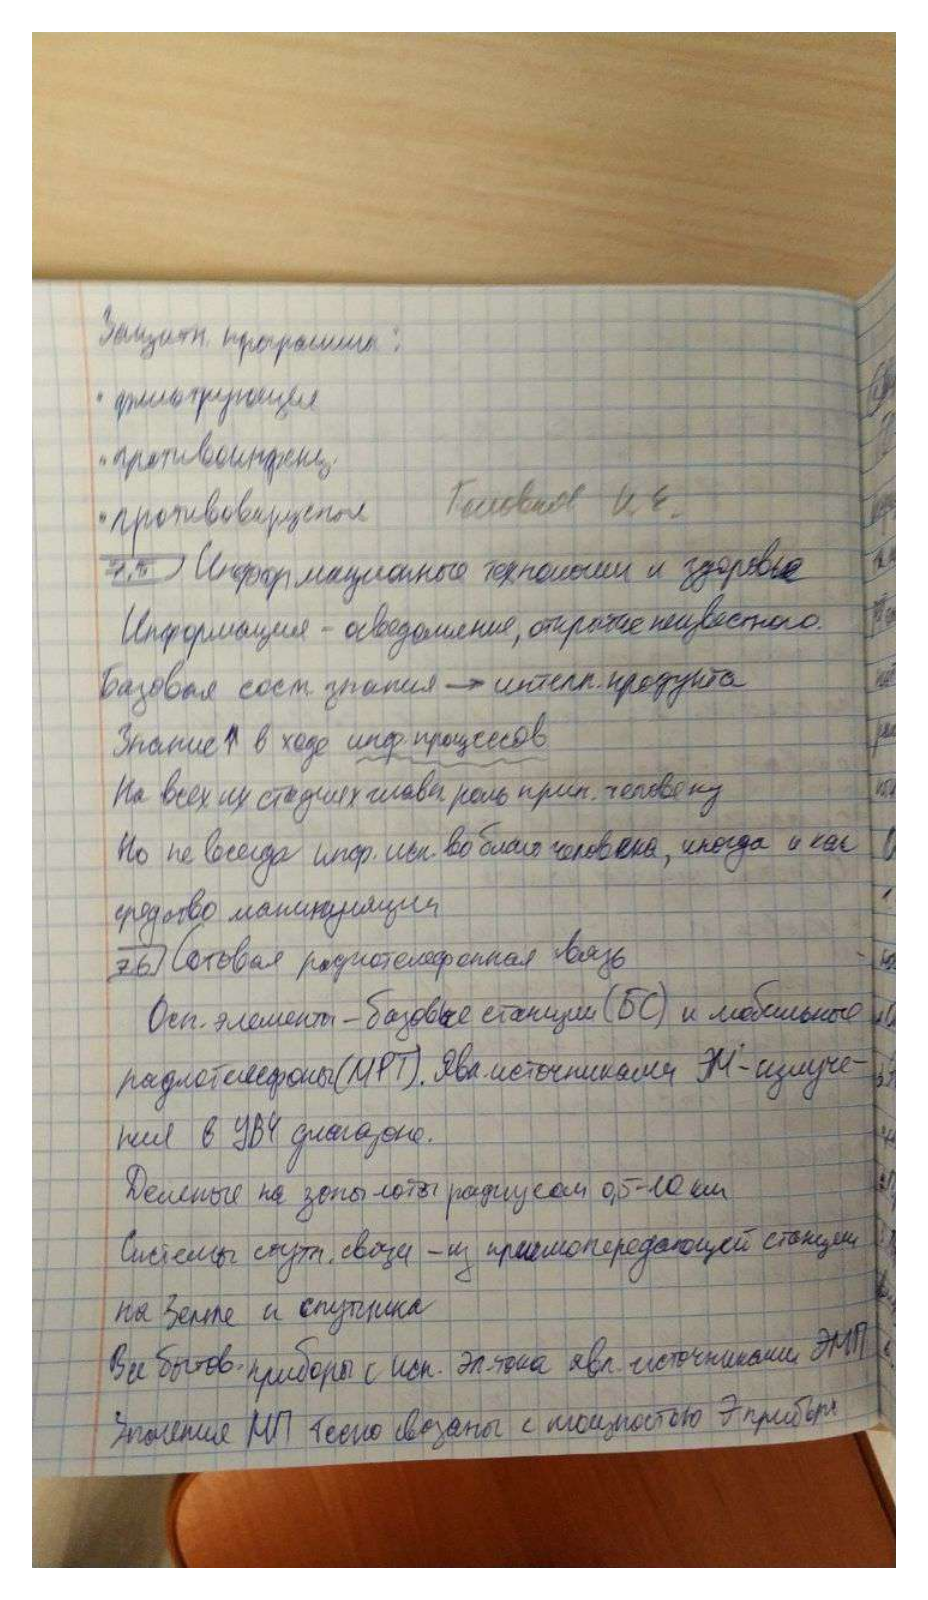 Защитн. программы:
• фильтрующая
• противоинфекц.
• противовирусная
И. Е.
7.5) Информационные технологии и здоровье
Информация - осведомление, открытие неизвестного.
Базовая сост. знания → интелл. продукта
Знание↑ в ходе инф. процессов
На всех их стадиях главн роль прин. человеку
Но не всегда инф. исп. во благо человека, иногда и как
средство манипуляции
7.6) Сотовая радиотелефонная связь
Осн. элементы - базовые станции (БС) и мобильные
радиотелефоны (МРТ). Явл. источниками ЭМ-излуче-
ния в УВЧ диапазоне.
Деленые на зоны соты радиусом 0,5-10 км
Системы спутн. связи - из приемопередающей станции
на Земле и спутника
Все бытов. приборы с исп. эл. тока явл. источниками ЭМП
Значения МП тесно связаны с мощностью Э прибора